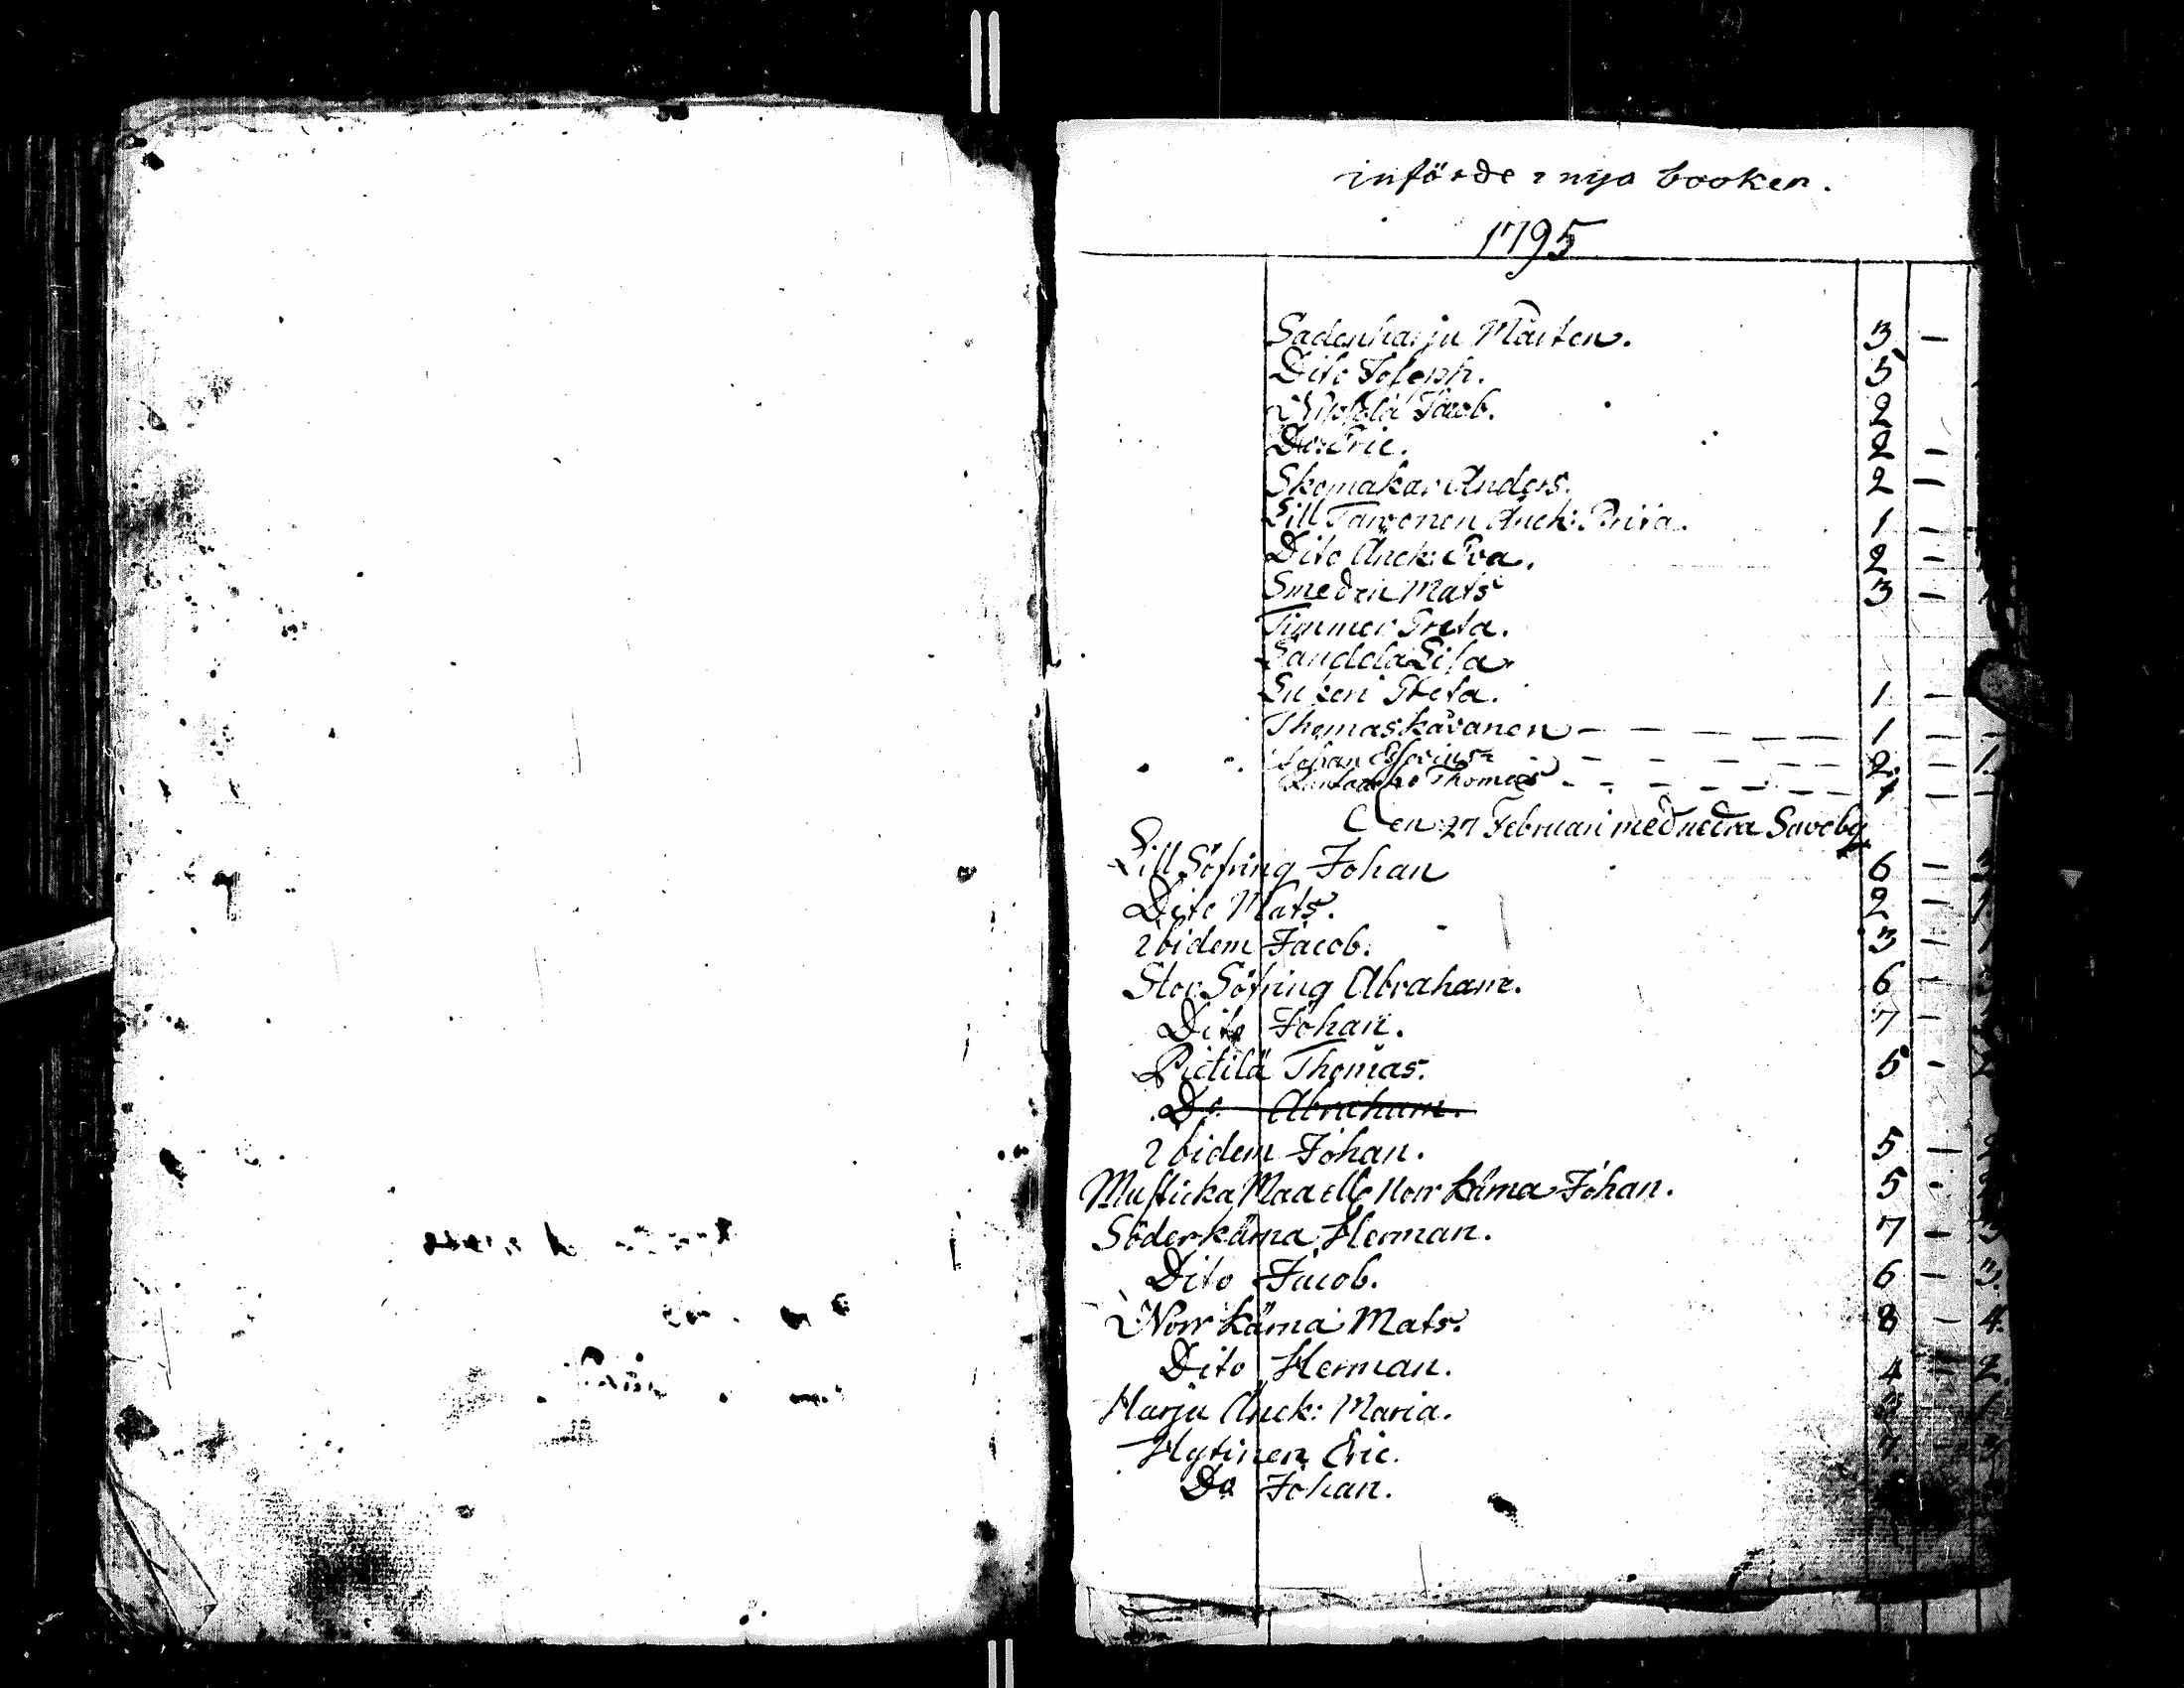 införde i nya booken.
1795
Sadenharju Mårten. 3 —
Dito Joseph. 5
Jacob. 2
Do: Eric. 2 —
Skomakar Anders. 2 —
Lill Tarvonen Änck: Brita. 1 —
Dito Änck: Eva. 2 —
Smeden Mats 3 —
Timmer Greta.
Lisa.
Greta. 1 —
Thomas Kävänen — — — — — 1 —
Johan — — — — 2. — 1.
Thomas — — — — — —
Den 27 Februari med nedra Savoby
Lill Söfring Johan 6 —
Dito Mats. 2 —
ibidem Jacob. 3 —
Stor Söfring Abraham. 6 —
Dito Johan. 7 —
Pietilä Thomas. 5 —
Do Abraham.
ibidem Johan. 5 —
Musticka Maa ell. Norr Kärna Johan. 5 -
Söderkärna Herman. 7 — 3
Dito Jacob. 6 — 3.
Norr Kärna Mats. 8 — 4.
Dito Herman. 4 — 2.
Harju Änck: Maria.
Hytinen Eric. 7
Do Johan.